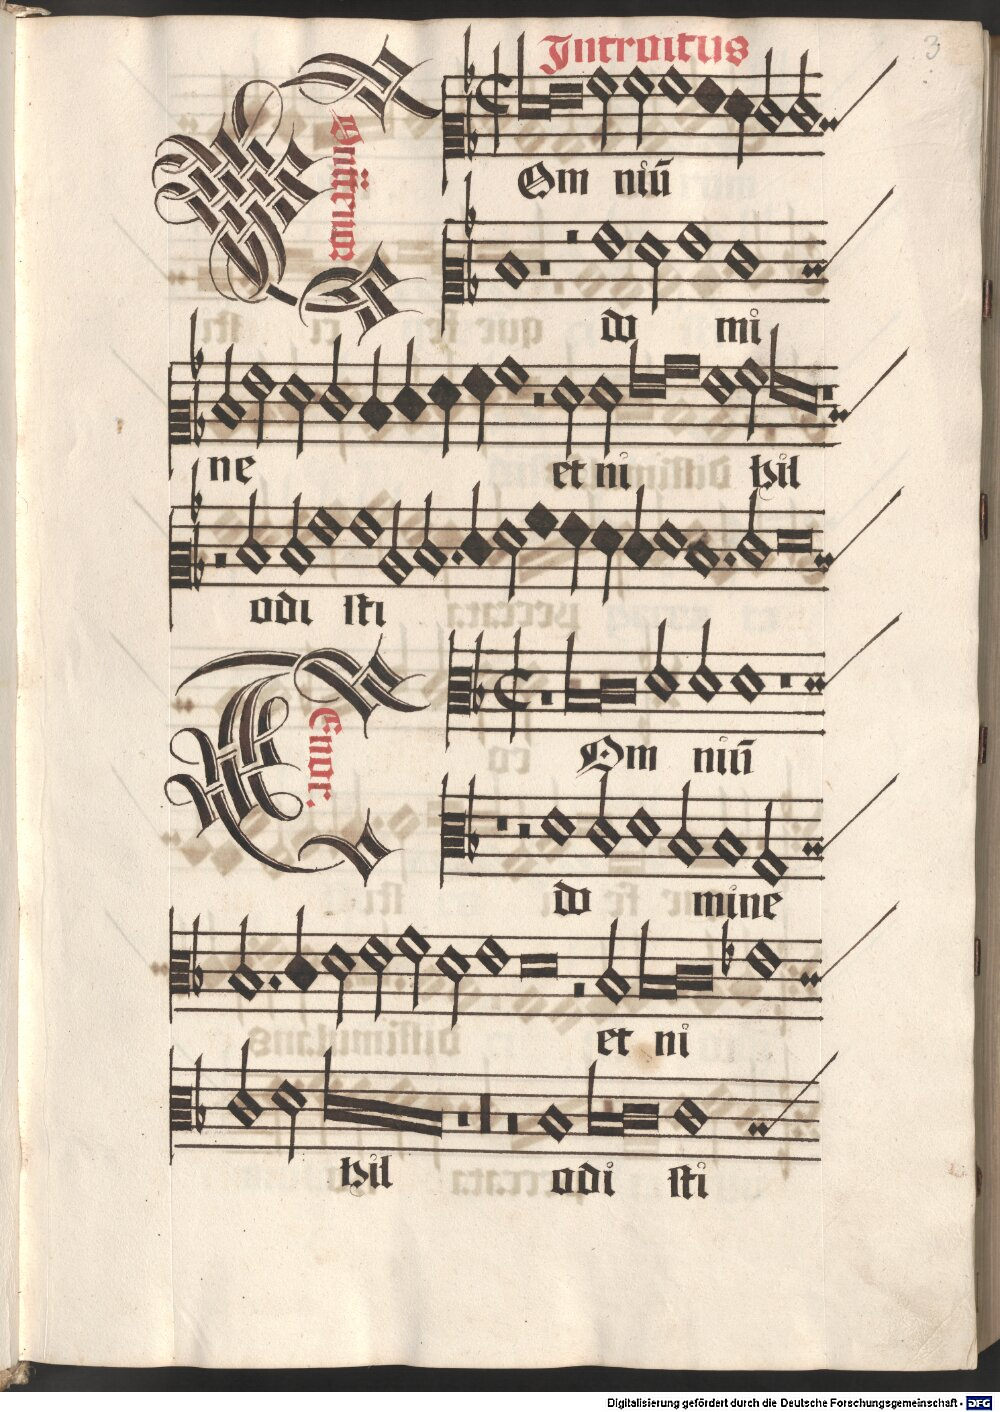 3
Introitus
Om niū
do mi
ne et ni hil
odi sti
Tenor.
Om niū
do mine
et ni
hil odi sti
Digitalisierung gefördert durch die Deutsche Forschungsgemeinschaft - DFG